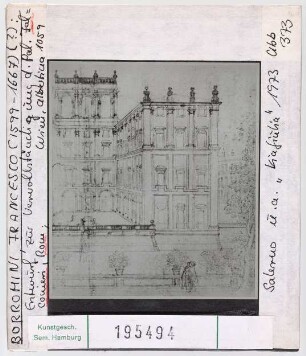 BORROMINI FRANCESCO (1599-1667) (?):
Entwurf zur Vervollständigung d. Pal. Fal=
conieri, Rom, Wien, Albertina 1059
Salerno u.a. „Via Giulia" 1973 Abb
373
Kunstgesch.
Sem. Hamburg
195494